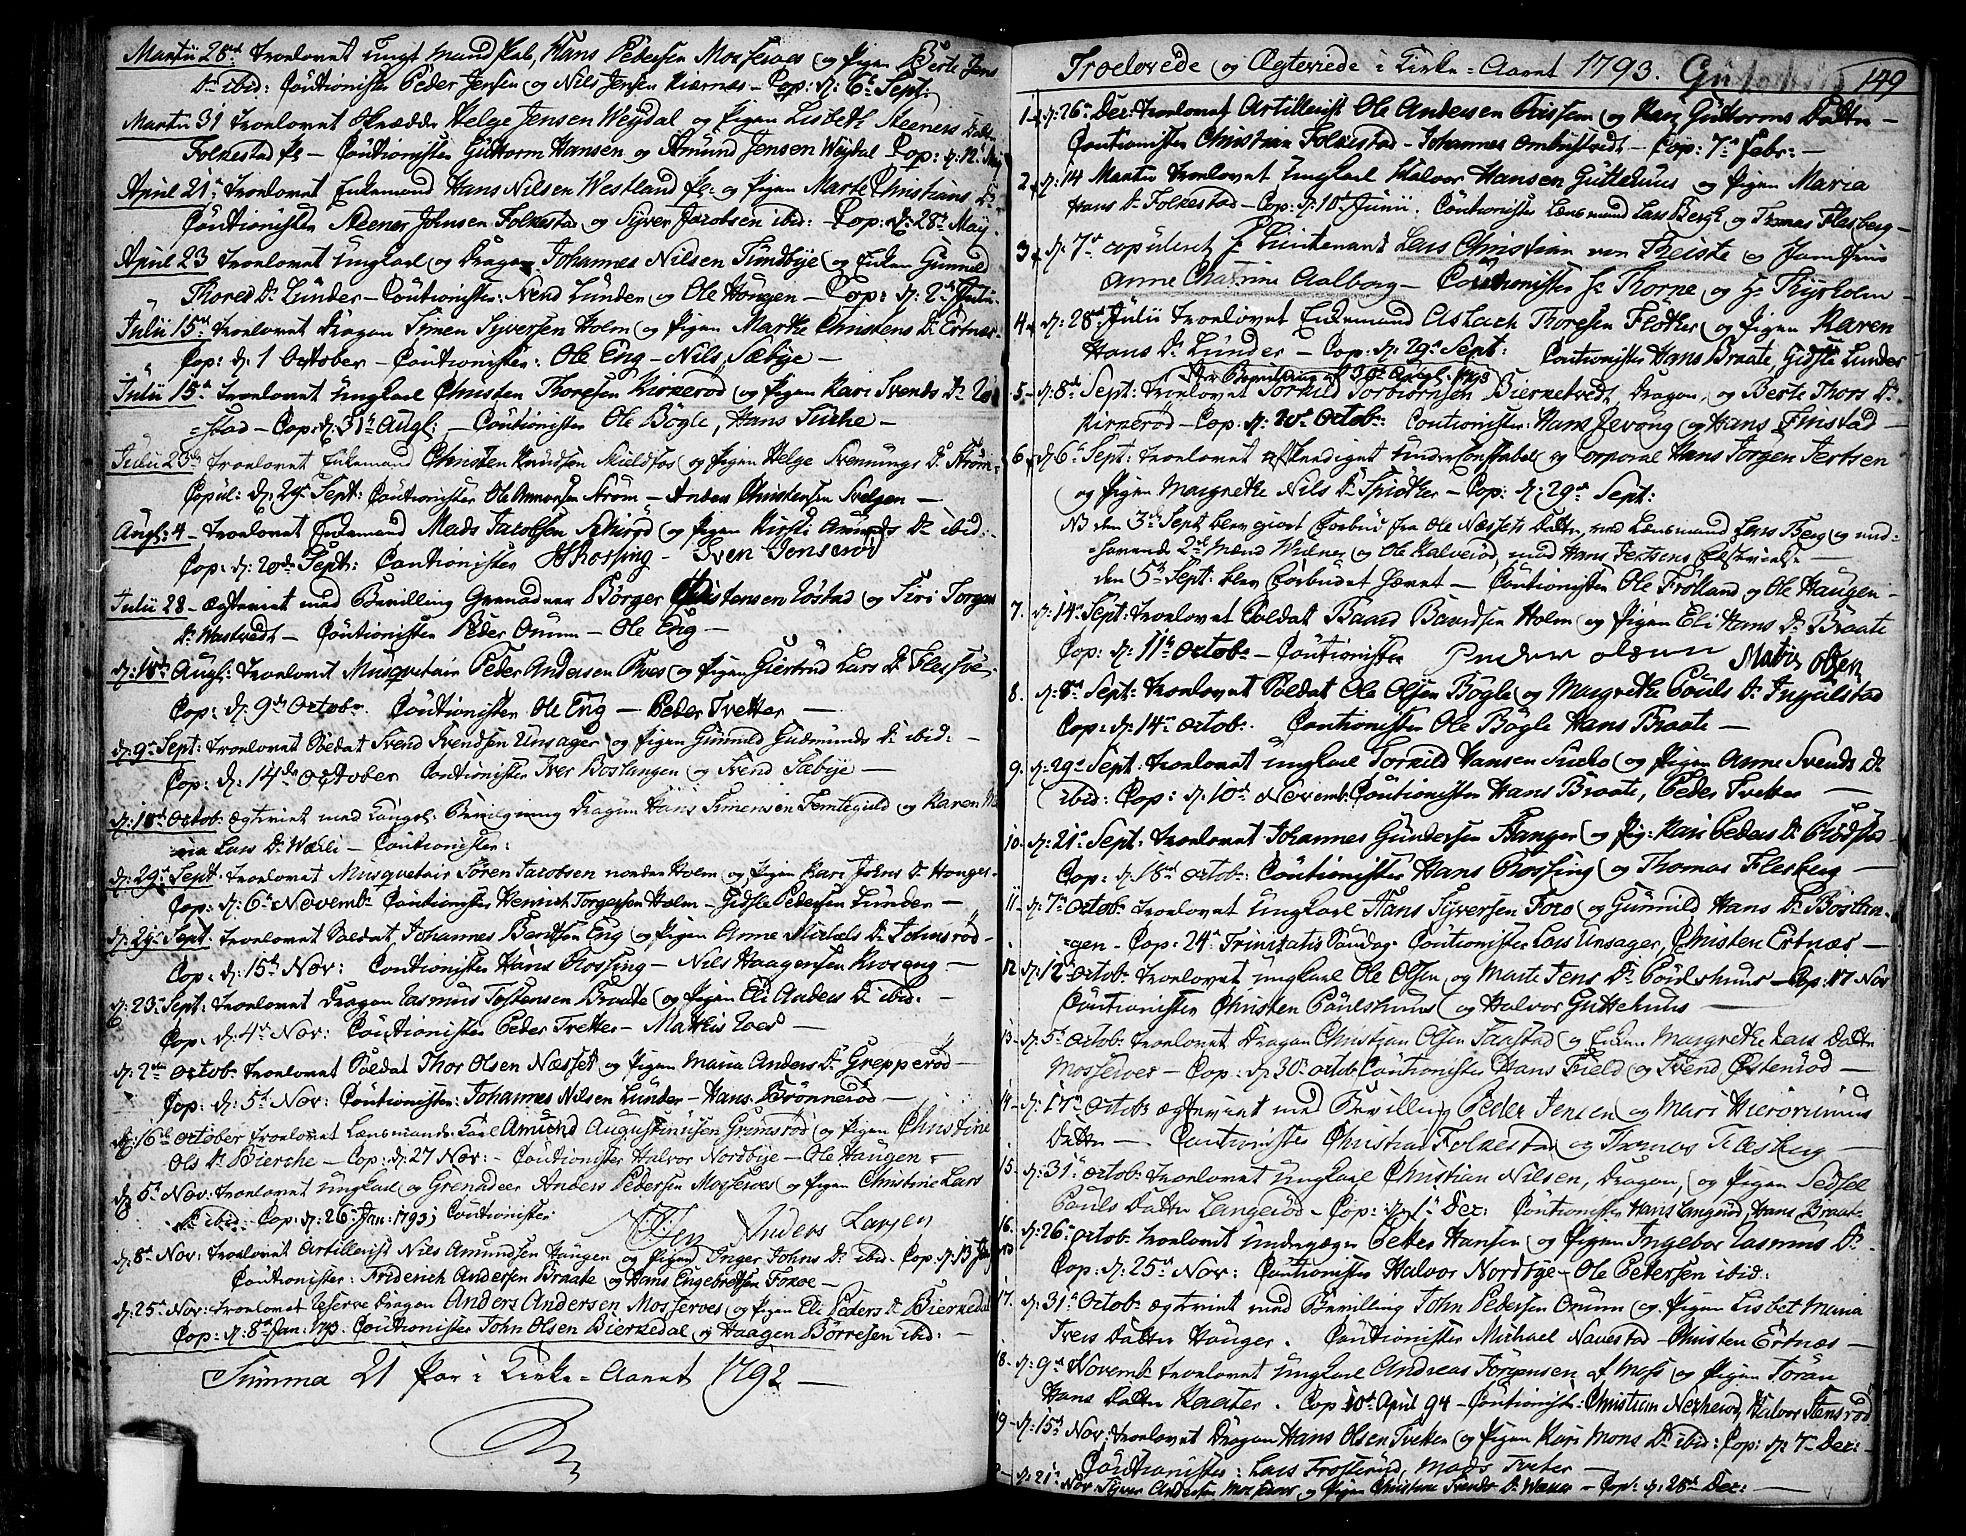 Martii 28de troelovet ungt mandskab Hans Pedersen Mosseroes og pigen Berte Jens
Dr. ibid: Cautionister Peder Jensen og Nils Jensen Kiærnæs - Cop: d: 6te Sept:
Martii 31 troelovet Skrædder Helge Jensen Weydal og pigen Lisbeth Steeners Datter
Folkestad - Cautionister Guttorm Hansen og Amund Jensen Weydal Cop: d: 12te May
April 21de troelovet Enkemand Hans Nilsen Westland og pigen Marte Christians Dr.
Cautionister Steener Johnsen Folkestad og Syver Jacobsen ibid: Cop: d: 28de May
April 23 troelovet ungkarl og Dragon Johannes Nilsen Sundbye og Enken Gunnild
Thores Dr. Lunder - Cautionister: Svend Lunder og Ole Hougen - Cop: d: 2de Julii
Julii 15de troelovet Dragon Simen Syversen Holm og pigen Marthe Christens Dr. Ertnæs
Cop: d: 1 October - Cautionister: Ole Eng - Nils Sæbye -
Julii 15de troelovet ungkarl Christen Thoresen Kirkerød og pigen Kari Svends Dr.
stad - Cop: d: 31te Augl: - Cautionister Ole Bøgle, Hans Sucke -
Julii 23de troelovet Enkemand Christen Knudsen Skuldfos og pigen Helge Svennungs Dr. Strøm
Copul: d: 29de Sept: Cautionister Ole Strøm - Anders Christensen -
Augl: 4 - troelovet Enkemand Mads Jacobsen og pigen Kirsti Amunds Dr. ibid.
Cop: d: 20de Sept: Cautionister H Rossing - Sven Jonserød
Julii 28 - Ægteviet med Bevilling Grenadeer Børger Christensen og Siri Jorgens
Dr. Wastvedt - Cautionister Peder Onum - Ole Eng -
d: 18de Augl: troelovet Musquetair Peder Andersen Thoes og pigen Giertrud Lars Dr.
Cop: d: 9de Octobr. Cautionister Ole Eng - Peder Tvetter -
d: 9de Sept: troelovet Soldat Svend Svendsen Unsager og pigen Gunnild Gudmunds Dr. ibid: -
Cop: d: 14de October Cautionister Iver Boslangen og Svend Sæbye -
d: 18de Octob: Ægteviet med Kongel: Bevilgning Dragon Hans Simensen og Karen Ma
ria Lars Dr. - Cautionister:
d: 29de Sept: troelovet Musquetair Søren Jacobsen nordre Holm og pigen Kari Johns Dr. Honger
Cop: d: 6te Novemb: Cautionister Henrich Torgersen Holm - Gidsle Pedersen Lunder -
d: 29de Sept: troelovet Soldat Johannes Bentsen Eng og pigen Anne Michels Dr. Johnsrød -
Cop: d: 15de Nov: Cautionister Hans Rossing - Nils Haagensen Kroseng -
d: 23de Sept: troelovet Dragon Rasmus Tostensen Braate og pigen Eli Anders Dr. ibid: -
Cop: d: 4de Nov: Cautionister Peder Tvetter - Mathis -
d: 2den Octob: troelovet Soldat Thor Olsen Næsset og pigen Maria Anders Dr. Grepperød -
Cop: d: 5te Nov: Cautionister: Johannes Nilsen Lunder - Hans Brønnerød -
d: 16de October troelovet Lænsmands Karl Amund Augustinusen Gremsrød og pigen Christine
Ols Dr. Bierche - Cop: d: 27 Nov: - Cautionister Halvor Nordbye - Ole Haugen -
d: 5te Nov: troelovet ungkarl og Grenadeer Anders Pedersen Mosseroes og pigen Christine Lars
Dr. ibid: Cop: d: 26 Jan: 1793; Cautionister: Anders Larsen
d: 8de Nov: troelovet Artillerist Nils Amundsen Haugen og pigen Inger Johns Dr. ibid - Cop: d: 13 Jan
Cautionister: Friderich Andersen Braate og Hans Engebretsen Foxoe -
d: 25de Nov: troelovet Reserve Dragon Anders Andersen Mosseroes og pigen Eli Peders Dr. Bierkedal
Cop: d: 8de Jan: 1793. Cautionister John Olsen Bierkedal og Haagen Børresen ibid: -
Summa 21 Par i Kirke-Aaret 1792 -
Troelovede og Ægteviede i Kirke-Aaret 1793. 149
1. d: 26de Dec: troelovet Artillerist Ole Andersen og Kari Guttorms Datter -
Cautionister Christian Folkestad - Johannes Ombustvedt - Cop: 7de Febr: -
2. d: 14 Martii troelovet ungkarl Halvor Hansen Guttehuus og pigen Maria
Hans Dr. Folkestad - Cop: d: 10de Junii. Cautionister Lænsmand Lars Bergh og Thomas Flesberg -
3. d: 7de copuleret Hr. Lieutenant Lars Christian von Theiste og Jomfrue
Anne Chatrine Aalborg - Cautionister Hr. Thorne og Hr. Thyrholm -
4. d: 28de Julii troelovet Enkemand Aslach Thoresen Fløther og pigen Karen
Hans Dr. Lunder - Cop: d: 29de Sept: Cautionister Hans Braate, Gidsle Lunder
5. d: 8de Sept: troelovet Torkild Torbiørnsen Bierketvedt, Dragon, og Berte Thors Dr.
Kirkerød - Cop: d: 20de Octob: Cautionister: Hans Revong og Hans Finstad -
6. d: 6te Sept: troelovet afskediget Under Constabel og Corporal Hans Jørgen Jertsen
og pigen Margrethe Nils Dr. - Cop: d: 29de Sept:
NB den 3de Sept: blev giort Forbud fra Ole Næssets Datter, ved Lænsmand Lars Berg og med-
havende 2de Mænd Wilner og Ole Kalverød, mod Hans Jertsens
den 5te Sept: blev Forbudet hævet - Cautionister Ole Frølland og Ole Haugen -
7. d: 14de Sept: troelovet Soldat Baard Baardsen Holm og pigen Eli Hans Dr. Braate
Cop: d: 11te Octob: - Cautionister Peder Olsen Matis Olsen
8. d: 8de Sept: troelovet Soldat Ole Olsen Bøgle og Margrethe Pouls Dr. Ingulstad
Cop: d: 14de Octob: Cautionister Ole Bøgle Hans Braate -
9. d: 29de Sept: troelovet ungkarl Torkild Hansen Sucke og pigen Anne Svends Dr.
ibid: Cop: d: 10de Novemb: Cautionister Hans Braate, Peder Tvetter -
10. d: 21de Sept: troelovet Johannes Gundersen Stanger og pig: Kari Peders Dr.
Cop: d: 18de Octob: Cautionister Hans Rossing og Thomas Flesberg -
11. d: 7de Octob: troelovet ungkarl Hans Syversen Foxo og Gunnild Hans Dr. Boslan-
gen - Cop: 24de Trinitatis Søndag. Cautionister Lars Unsager, Christen Ertnæs -
12. d: 12de Octob: troelovet ungkarl Ole Olsen og Marte Jens Dr. Poulshuus - Cop: 17 Nov
Cautionister Christen Poulshuus og Halvor Guttehuus -
13. d: 5te Octob: troelovet Dragon Christian Olsen Taastad og Enken Margrethe Lars Datter
Mosseroes - Cop: d: 30te Octob: Cautionister Hans Field og Svend Østenrød -
14. d: 17de Octob: ægteviet med Bevilling Peder Jensen og Mari Hieronimus
Datter - Cautionister Christian Folkestad og Thomas Flesberg -
15. d: 31te Octob: troelovet ungkarl Christian Nilsen, Dragon, og pigen Sedsel
Pouls Datter Langerød - Cop: d: 1te Dec: Cautionister Hans Langerød, Hans Braate
16. d: 26de Octob: troelovet Petter Hansen og pigen Ingebor Rasmus Dr.
Cop: d: 25de Nov: Cautionister Halvor Nordbye - Ole Petersen ibid:
17. d: 31te Octob: ægteviet med Bevilling John Pedersen Onum og pigen Lisbet Maria
Ivers Datter Hauger. Cautionister Michael Navestad - Christen Ertnæs -
18. d: 9de Novemb: troelovet ungkarl Andreas Jørgensen af Moss og pigen Jøran
Hans Datter Kaater. Cop 10de April 94 - Cautionister: Christian Nerherød, Halvor Stensrød
19. d: 15de Nov: troelovet Dragon Hans Olsen Tvetter og pigen Kari Mons Dr. ibid: Cop: d: 7de Dec: -
Cautionister: Lars Frosterud, Mads Tveter -
d: 21de Nov Syver Andersen Mosseroes og pigen Christine Svends Dr. - Cop: d: 28de Dec: -